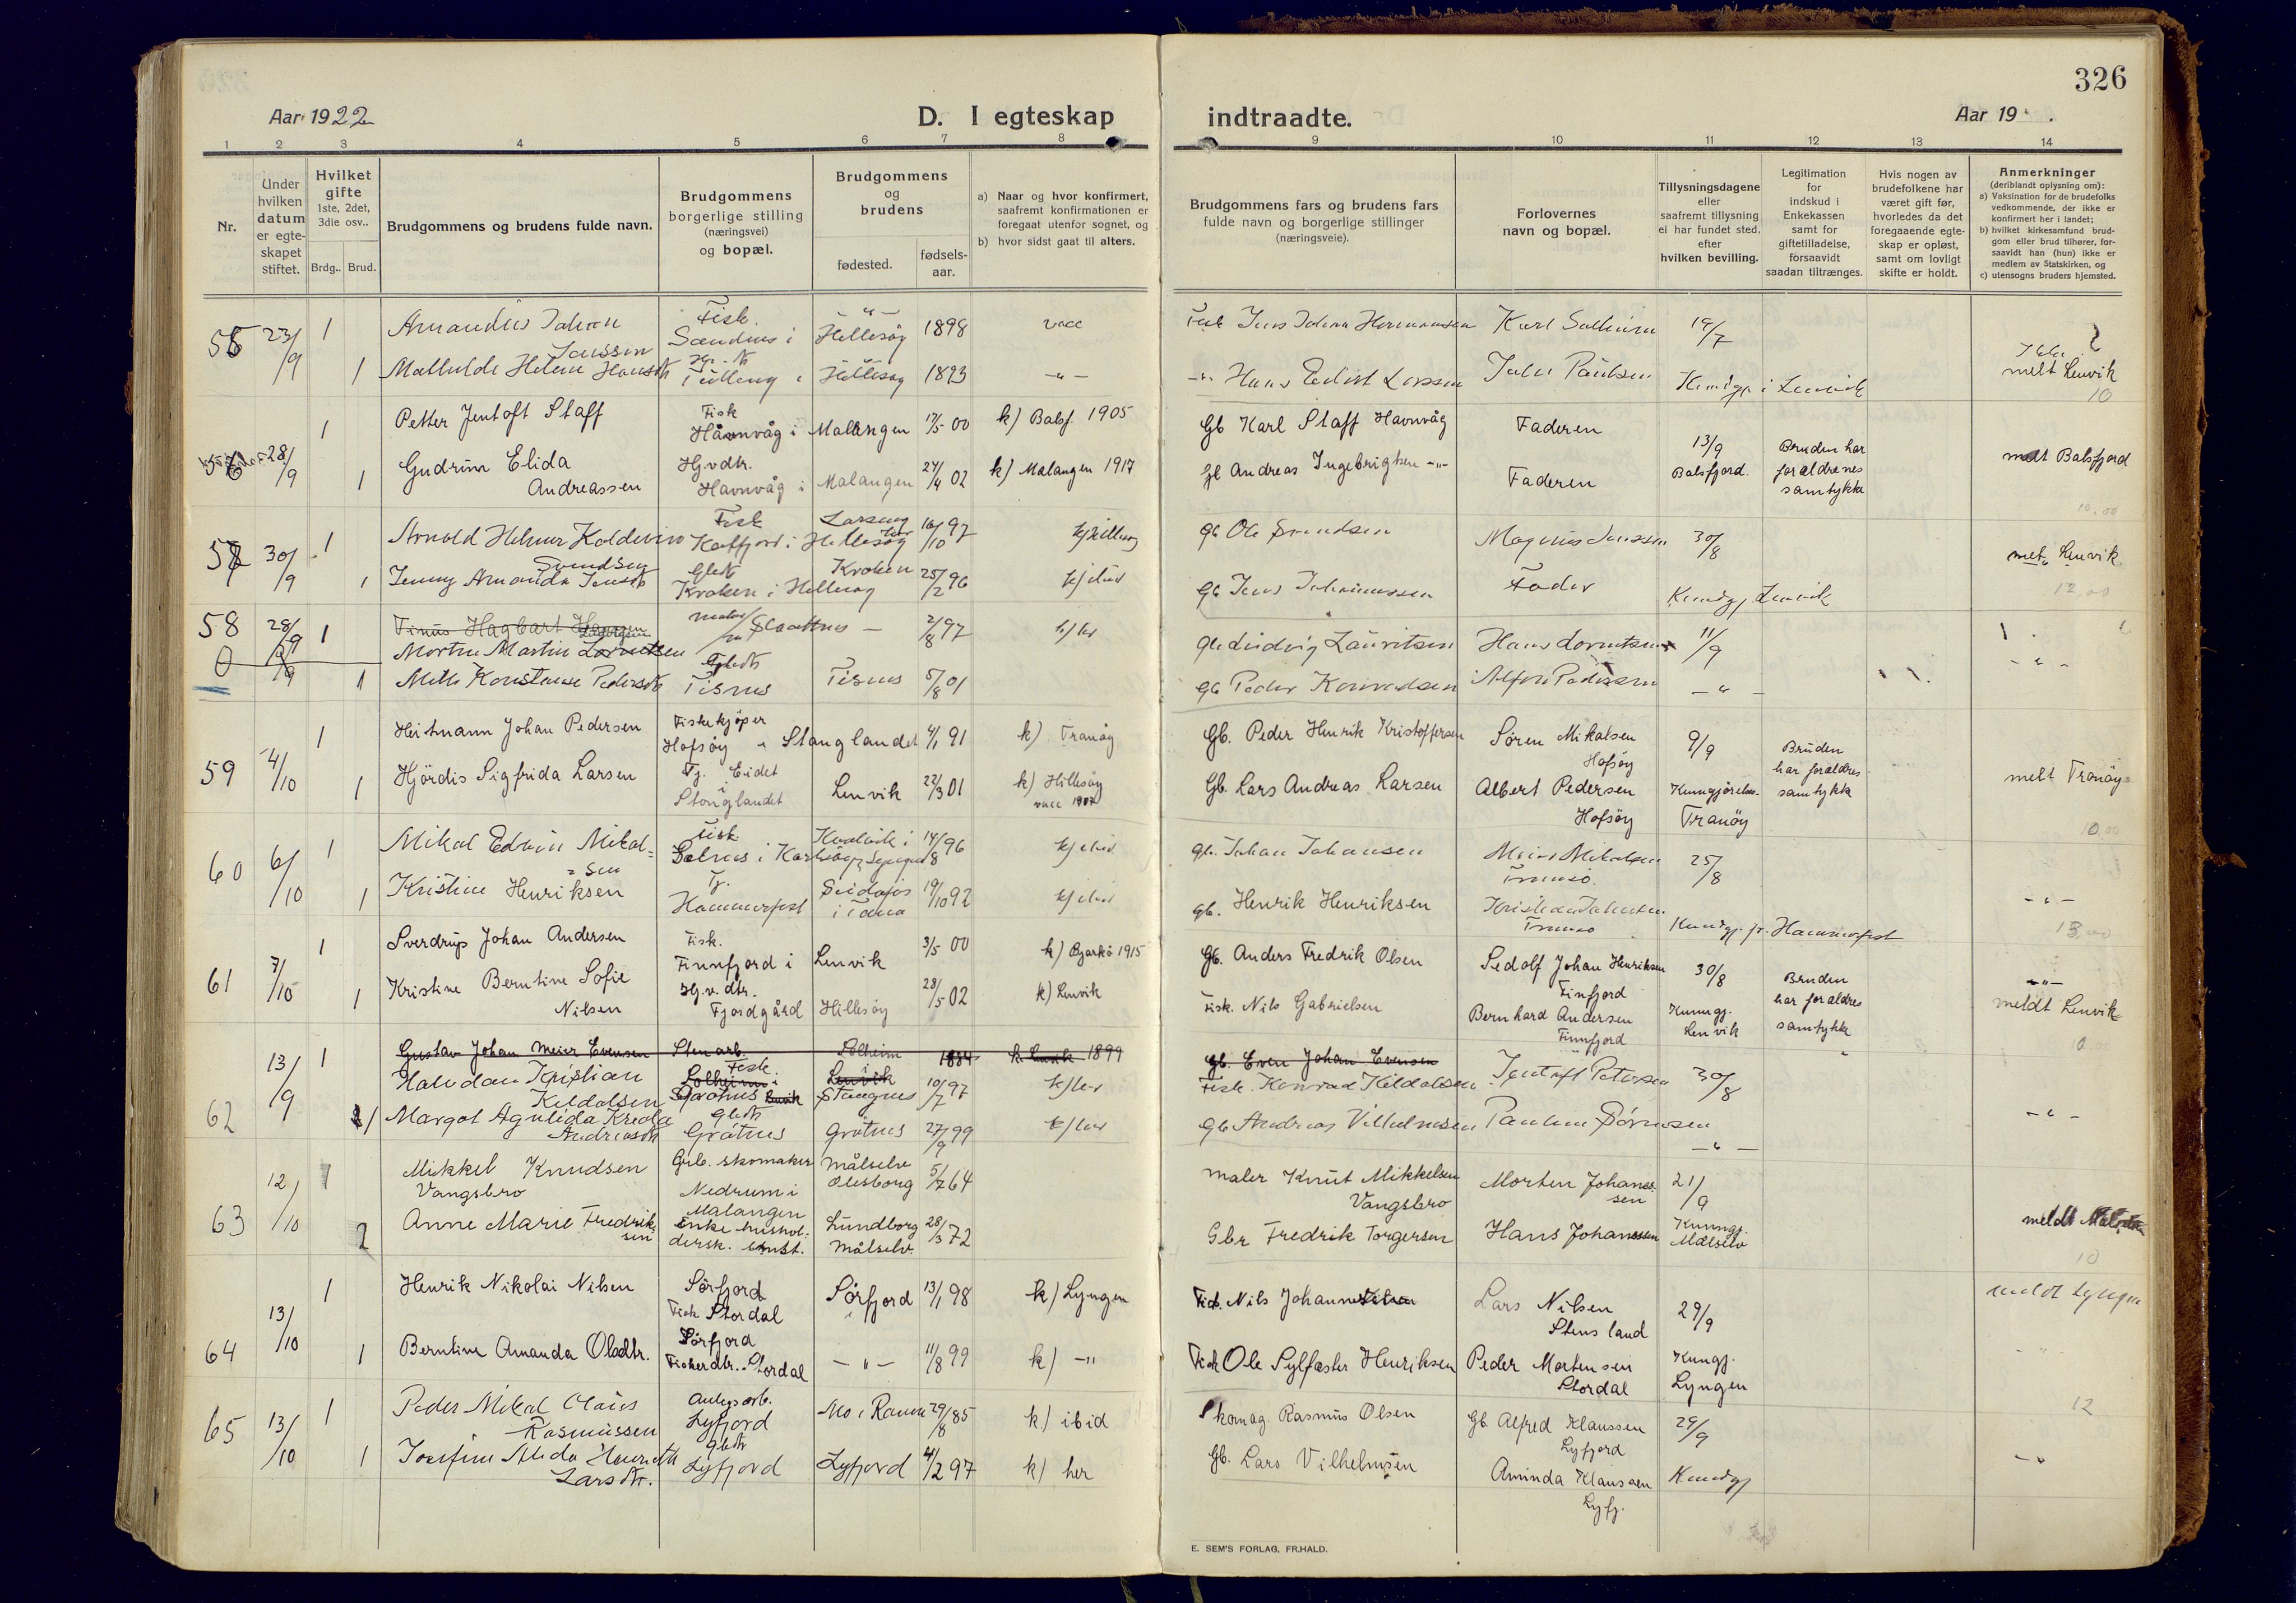 326
Aar 1922
D. I egteskap
indtraadte.
Aar 19
1 2 3 4 5 6 7 8
9 10 11 12 13 14
Nr.
Under hvilken datum er egteskapet stiftet.
Hvilket gifte 1ste, 2det, 3die osv..
Brdg.. Brud.
Brudgommens og brudens fulde navn.
Brudgommens borgerlige stilling (næringsvei) og bopæl.
Brudgommens og brudens
fødested.
fødsels-aar.
a) Naar og hvor konfirmert, saafremt konfirmationen er foregaat utenfor sognet, og
b) hvor sidst gaat til alters.
Brudgommens fars og brudens fars fulde navn og borgerlige stillinger (næringsveie).
Forlovernes navn og bopæl.
Tillysningsdagene eller saafremt tillysning ei har fundet sted. efter hvilken bevilling.
Legitimation for indskud i Enkekassen samt for giftetilladelse, forsaavidt saadan tiltrænges.
Hvis nogen av brudefolkene har været gift før, hvorledes da det foregaaende egteskap er opløst, samt om lovligt skifte er holdt.
Anmerkninger (deriblandt oplysning om):
a) Vaksination for de brudefolks vedkommende, der ikke er konfirmert her i landet;
b) hvilket kirkesamfund brudgom eller brud tilhører, forsaavidt han (hun) ikke er medlem av Statskirken, og
c) utensogns bruders hjemsted.
55 23/9 1 Amandus Johan Fisk. Hillesøy 1898 vacc
Jenssen
Fisk Jens Johan Hermansen Karl Solheim 19/7
1 Mathilde Helene Hansdtr Hillesøy 1893 -"-
-"- Hans Edvart Larssen Johan Paulsen Kundgj. i Lenvik melt Lenvik
10
56 28/9 1 Petter Jentoft Staff Fisk Håvnvåg i Malangen 17/5 00 k) Balsf. 1905
Gb Karl Staff Havnvåg Faderen 13/9 Balsfjord. Bruden har forældrenes samtykke melt Balsfjord
1 Gudrun Elida Andreassen Hj.v.dtr. Havnvåg i Malangen 24/4 02 k) Malangen 1917
Gb Andreas Ingebrigtsen -"- Faderen
10,00
57 30/9 1 Arnold Helmer Koldevin Svendsen Fisk Katfjord i Hillesøy 16/10 97
Gb Ole Svendsen Magnus Jenssen 30/8 melt Lenvik
1 Jenny Amanda Jensdtr Gbdtr Kroken i Hillesøy Kroken 25/2 96
Gb Jens Johannessen Fader Kundgj. Lenvik
12,00
58 28/9 1 Finus Hagbart Hansen
0 Morten Martin Lorentsen 2/8 97
Gb Ludvig Lauritsen Hans Lorentsen 11/9
1 Mette Konstanse Pedersdtr Gbdtr Tisnes Tisnes 5/8 01
Gb Peder Konradsen Alfon Pedersen -"-
59 4/10 1 Heitmann Johan Pedersen Fiskekjøper Hofsöy i Stanglandet 4/1 91 k) Tranöy
Gb. Peder Henrik Kristoffersen Sören Mikalsen Hofsöy 9/9 Bruden har forældres samtykk melt Tranöy
1 Hjördis Sigfrida Larsen Tj. Eidet i Stonglandet Lenvik 22/3 01 k) Hillesöy vacc
Gb. Lars Andreas Larsen Albert Pedersen Hofsöy Kunngjörelse. Tranöy
10,00
60 6/10 1 Mikal Edvin Mikal=sen Fisk. 14/8 96
Gb. Johan Johansen Tromsø 25/8
1 Kristine Henriksen Tj. Hammerfest i Tana 19/10 92
Gb. Henrik Henriksen Tromsø Kundgj. Hammerfest -"-
61 7/10 1 Sverdrup Johan Andersen Fisk. Finnfjord i Lenvik 3/5 00 k) Bjarkö 1915
Gb. Anders Fredrik Olsen Sedolf Johan Henriksen Finfjord 30/8 Bruden har forældres samtykke -"-
1 Kristine Berntine Sofie Nilsen Hj.v.dtr. Fjordgård Hillesöy 28/5 02 k) Lenvik
Fisk. Nils Gabrielsen Bernhard Andersen Finnfjord Kunngj. Lenvik meldt Lenvik
10,00
13/9 1 Gustav Johan Meier Evensen Sten arb. Solheim Solheim i Lenvik 1884 k. Lenvik 1899
Gb. Even Johan Evensen
62 Halvdan Kristian Kildalsen Fisk. Grötnes Stangnes 10/7 97
Fisk. Konrad Kildalsen Jentoft Petersen 30/8
1 Margot Agnlida Kredla Andreasdtr Gbdtr Gråtnes Gråtnes 27/9 99
Gb Andreas Vilhelmsen Paulus Sörensen -"- -"-
63 12/10 1 Mikkel Knudsen Vangsbro Grb. skomaker Nedrum i Malangen Målselv Olesborg 5/7 64
Maler Knut Mikkelsen Vangsbro Morten Johansen 21/9
2 Anne Marie Fredriksen Enke hushol: dersk. Lundborg Målselv. 28/3 72
Gbr Fredrik Torgersen Hans Johansen Kunngj. Målselv meldt Målselv
10
64 13/10 1 Henrik Nikolai Nilsen Sörfjord Fisk Stordal Sörfjord 13/1 98 k) Lyngen
Fisk. Nils Johan Nilsen Lars Nilsen Stensland 29/9 meldt Lyngen
1 Berntine Amanda Olsdtr. Sörfjord Fiskerdtr. Stordal -"- 11/8 99 k) -"-
Fisk Ole Sylfæster Henriksen Peder Mortensen Stordal Kungj. Lyngen
12
65 13/10 1 Peder Mikal Claus Rasmussen Anlegsarb. Lyfjord Mo i Rana 29/8 85 k) ibid
Skomag. Rasmus Olsen Gb. Alfred Klaussen Lyfjord 29/9
1 Josefine Alida Larsdtr. Gbdtr Lyfjord Lyfjord 4/2 97 k) her
Gb. Lars Vilhelmsen Aminda Klaussen Lyfj. Kundgj -"-
E. SEM'S FORLAG, FR.HALD.